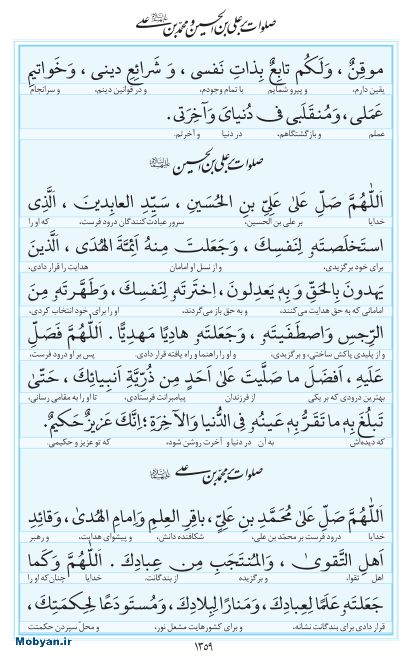 صلوات بر علی بن الحسین و محمد بن علی علیهما السلام
موقِنٌ ، وَلَكُم تابِعٌ بِذاتِ نَفسي ، وَ شَرائِعِ ديني ، وَخَواتيمِ
یقین دارم، و پیرو شمایم با تمام وجودم، و در قوانین دینم، و سرانجام
عَمَلي ، وَمُنقَلَبي في دُنيايَ وَآخِرَتي .
عملم و بازگشتگاهم، در دنیا و آخرتم.
صلوات بر علی بن الحسین علیه السلام
اَللّٰهُمَّ صَلِّ عَلىٰ عَلِيِّ بنِ الحُسَينِ ، سَيِّدِ العابِدينَ ، اَلَّذِي
خدایا بر علی بن الحسین، سرور عبادت‌کنندگان درود فرست، که او را
استَخلَصتَهُ لِنَفسِكَ ، وَجَعَلتَ مِنهُ اَئِمَّةَ الهُدىٰ ، اَلَّذينَ
برای خود برگزیدی، و از نسل او امامان هدایت را قرار دادی،
يَهدونَ بِالحَقِّ وَ بِهِ يَعدِلونَ ، اِختَرتَهُ لِنَفسِكَ ، وَطَهَّرتَهُ مِنَ
امامانی که به حق هدایت می‌کنند، و به حق باز می‌گردند. او را برای خود انتخاب کردی،
الرِّجسِ وَاصطَفَيتَهُ ، وَجَعَلتَهُ هادِيًا مَهدِيًّا . اَللّٰهُمَّ فَصَلِّ
و از پلیدی پاکش ساختی، و برگزیدی، و او را راهنما و راه یافته قرار دادی. پس بر او درود فرست،
عَلَيهِ ، اَفضَلَ ما صَلَّيتَ عَلىٰ اَحَدٍ مِن ذُرِّيَّةِ اَنبِيائِكَ ، حَتّىٰ
بهترین درودی که بر یکی از فرزندان پیامبرانت فرستادی، تا او را به مقامی رسانی،
تَبلُغَ بِهِ ما تَقَرُّ بِهِ عَينُهُ فِي الدُّنيا وَالآخِرَةِ ؛ اِنَّكَ عَزيزٌ حَكيمٌ.
که دیده‌اش به آن در دنیا و آخرت روشن شود، که تو عزیز و حکیمی.
صلوات بر محمد بن علی علیه السلام
اَللّٰهُمَّ صَلِّ عَلىٰ مُحَمَّدِ بنِ عَلِيٍّ ، باقِرِ العِلمِ وَاِمامِ الهُدىٰ ، وَقائِدِ
خدایا درود فرست بر محمد بن علی، شکافنده دانش، و پیشوای هدایت، و رهبر
اَهلِ التَّقوىٰ ، وَالمُنتَجَبِ مِن عِبادِكَ . اَللّٰهُمَّ وَكَما
اهل تقوا، و برگزیده از بندگانت. خدایا چنان‌که او را
جَعَلتَهُ عَلَمًا لِعِبادِكَ ، وَمَنارًا لِبِلادِكَ ، وَمُستَودَعًا لِحِكمَتِكَ ،
قرار دادی برای بندگانت نشانه، و برای کشورهایت مشعل نور، و محل سپردن حکمتت
۱۳۵۹
Mobyan.ir